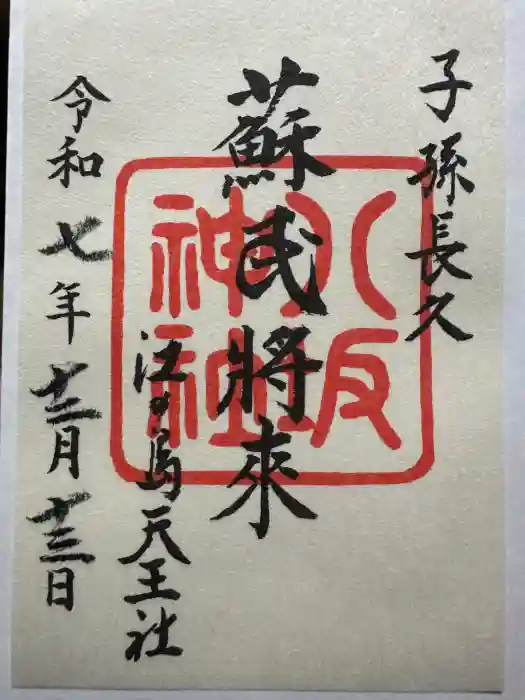 子孫長久
蘇民將來
江の島天王社
令和七年十二月十三日
八坂
神社